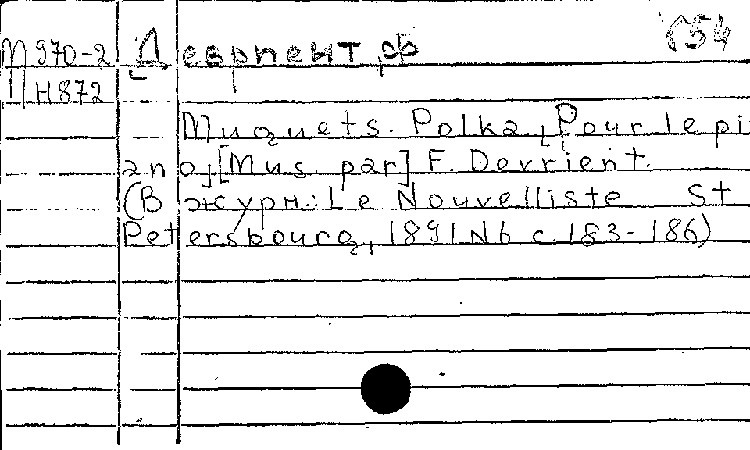 М970-2 Девриент Ф 654
П Н872
Muguets. Polka [Pour le pi
ano], [Mus. par] F. Devrient.
(В журн.: Le Nouvelliste St
Petersbourg, 1891 N6 с. 183-186)